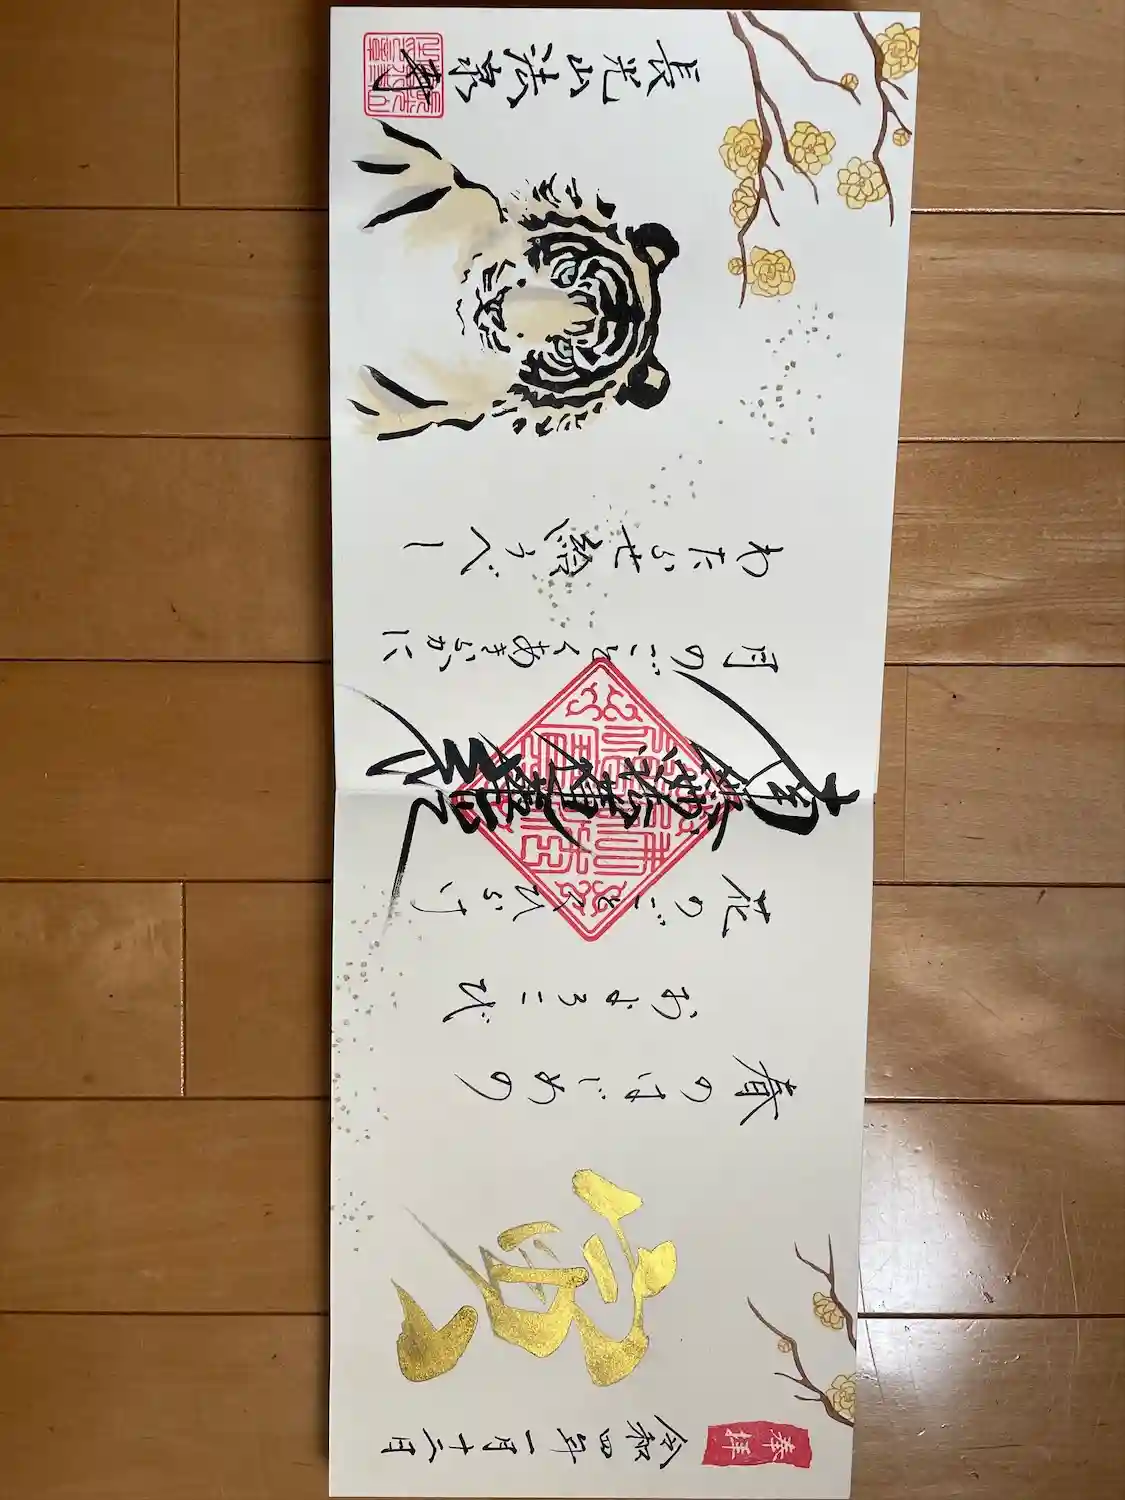 奉拝
令和四年一月十二日
寅
春のはじめの
およろこび
花のごとくひらけ
南無妙法蓮華経
月のごとくあきらかに
わたらせ給うべし
長光山法